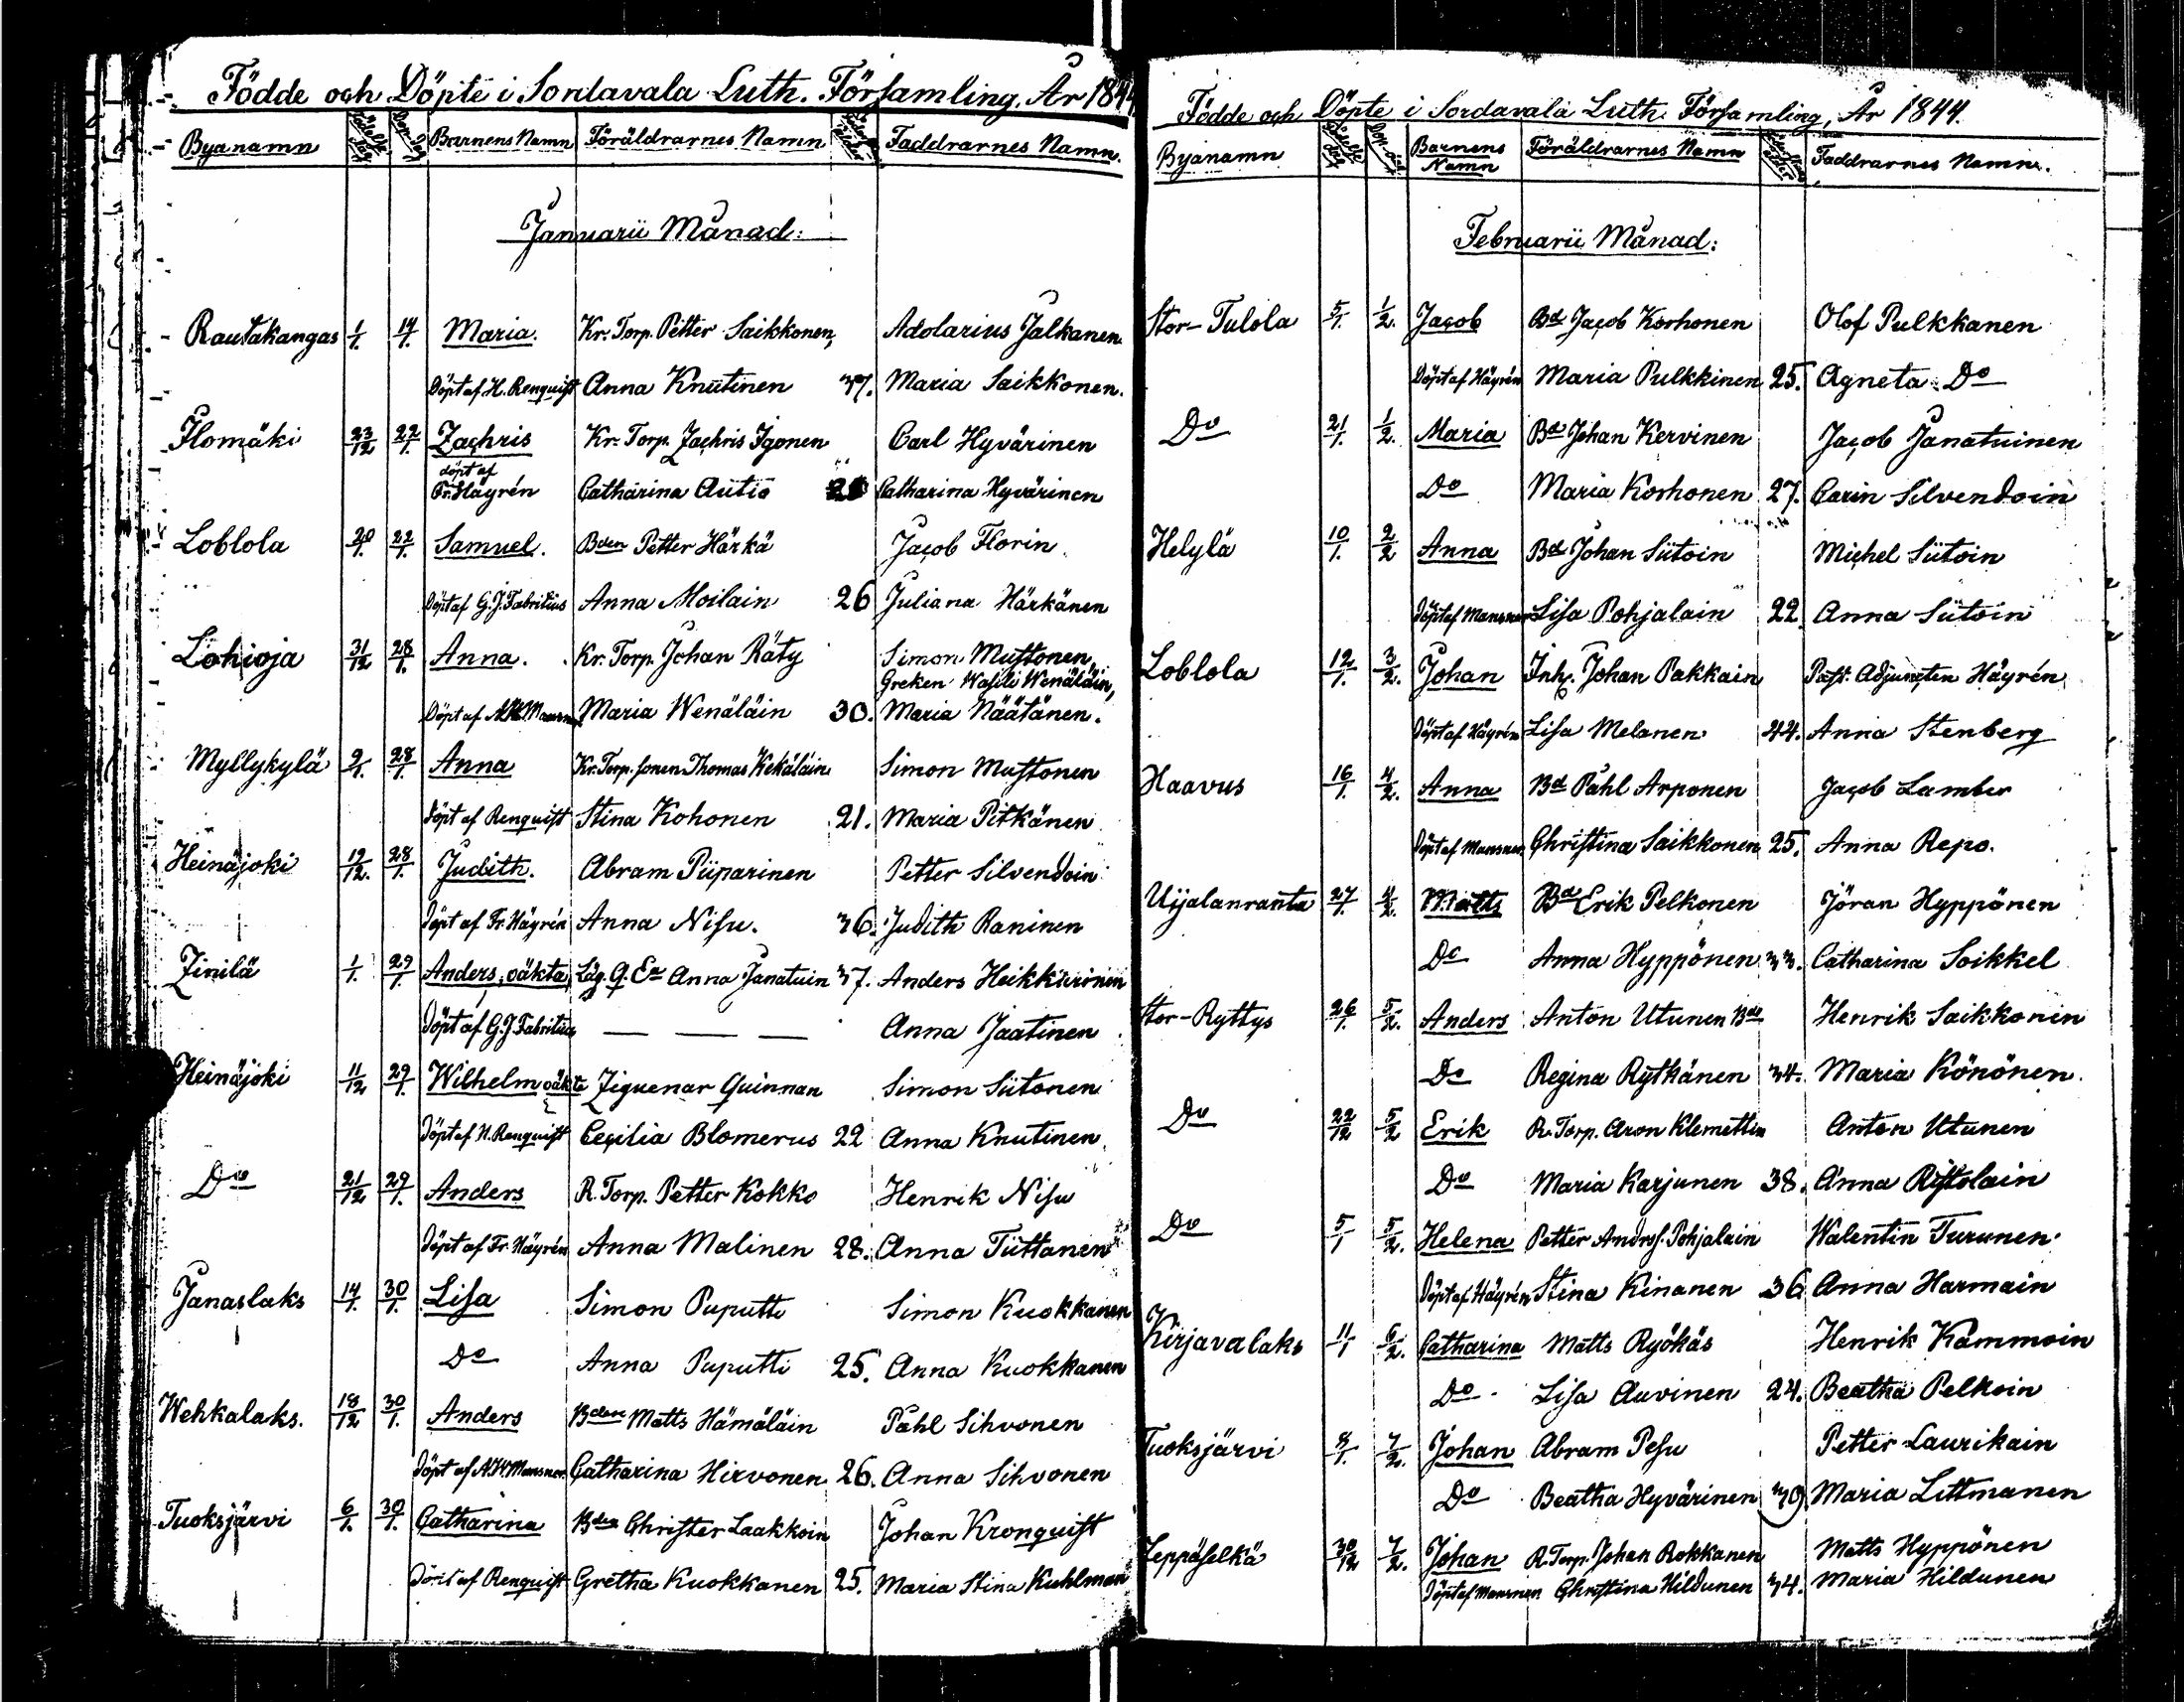 Födde och Döpte i Sordavala Luth. Församling, År 1844
Byanamn Födelse dag Dop-dag Barnens Namn Föräldrarnes Namn Faddrarnes Namn.
Januarii Månad:
Rautakangas 1/1. 14/1. Maria. Kr. Torp. Petter Saikkonen, Adolarius Jalkanen.
Döpt af H. Renquist Anna Knutinen 37. Maria Saikkonen.
Ilomäki 23/12 22/1. Zachris Kr. Torp. Zachris Igonen Carl Hyvärinen
döpt af
Fr. Häyrén Catharina Autio Catharina Hyvärinen
Loblola 20/1. 22/1. Samuel. Bden Petter Härkä Jacob Florin
Döpt af G.J. Fabritius Anna Moilain 26 Juliana Härkänen
Lohioja 31/12 28/1. Anna. Kr. Torp. Johan Räty Simon Mustonen,
Greken Wasili Wenäläin,
Döpt af Maria Wenäläin 30. Maria Näätänen.
Myllykylä 9/1. 28/1. Anna Kr. Torp. sonen Thomas Kekäläin Simon Mustonen
Döpt af Renquist Stina Kohonen 21. Maria Pitkänen
Heinäjoki 19/12. 28/1. Judith. Abram Piiparinen Petter Silvendoin
Döpt af Fr. Häyrén Anna Nisu. 36. Judith Raninen
Zinilä 1/1. 29/1. Anders, oäkta, Anna Janatuin 37. Anders Heikkurinen
Döpt af G.J. Fabritius — — — Anna Jaatinen
Heinäjoki 11/12 29/1. Wilhelm oäkta Ziguenar Quinnan Simon Siitonen
Döpt af H. Renquist Cecilia Blomerus 22 Anna Knutinen
Do 21/12 29/1. Anders R. Torp. Petter Kokko Henrik Nisu
Döpt af Fr. Häyrén Anna Malinen 28. Anna Tiittanen
Janaslaks 14/1. 30/1. Lisa Simon Puputti Simon Kuokkanen
Do Anna Puputti 25. Anna Kuokkanen
Wehkalaks. 18/12 30/1. Anders Bden Matts Hämäläin Påhl Sihvonen
Döpt af A.W. Mansner. Catharina Hirvonen 26. Anna Sihvonen
Tuoksjärvi 6/1. 30/1. Catharina Bden Christer Laakkoin Johan Kronquist
Döpt af Renquist Gretha Kuokkanen 25. Maria Stina Kuhlman
Födde och Döpte i Sordavala Luth. Församling, År 1844.
Byanamn Födelse dag Dop-dag Barnens Namn Föräldrarnes Namn Faddrarnes Namn.
Februarii Månad:
Stor-Tulola 5/1. 1/2. Jacob Bd Jacob Korhonen Olof Pulkkanen
Döpt af Häyrén Maria Pulkkinen 25. Agneta Do
Do 21/1. 1/2. Maria Bd Johan Kervinen Jacob Janatuinen
Do Maria Korhonen 27. Carin Silvendoin
Helylä 10/1. 2/2 Anna Bd Johan Siitoin Michel Siitoin
Döpt af Mansner Lisa Pohjalain 22. Anna Siitoin
Loblola 12/1. 3/2. Johan Inh. Johan Pakkain Past. Adjuncten Häyrén
Döpt af Häyrén Lisa Melanen 44. Anna Stenberg
Haavus 16/1. 4/2. Anna Bd Påhl Arponen Jacob Lamber
Döpt af Mansner Christina Saikkonen 25. Anna Repo.
Uijalanranta 27/1. 4/2. Matts Bd Erik Pelkonen Jöran Hyppönen
Do Anna Hyppönen 33. Catharina Soikkel
Stor-Ryttys 26/1. 5/2. Anders Anton Utunen Bde Henrik Saikkonen
Do Regina Rytkänen 34. Maria Könönen.
Do 22/12 5/2 Erik R. Torp. Aron Klemettin Anton Utunen
Do Maria Karjunen 38. Anna Ristolain
Do 5/1 5/2. Helena Petter Andrs. Pohjalain Walentin Turunen
Döpt af Häyrén Stina Kinanen 36 Anna Harmain
Kirjavalaks 11/1 6/2. Catharina Matts Ryökäs Henrik Kammoin
Do Lisa Auvinen 24. Beatha Pelkoin
Tuoksjärvi 8/1. 7/2. Johan Abram Pesu Petter Laurikain
Do Beatha Hyvärinen 39 Maria Littmanen
Leppäselkä 30/12 7/2. Johan R. Torp. Johan Rokkanen Matts Hyppönen
Döpt af Mansner Christina Hildunen 34. Maria Hildunen